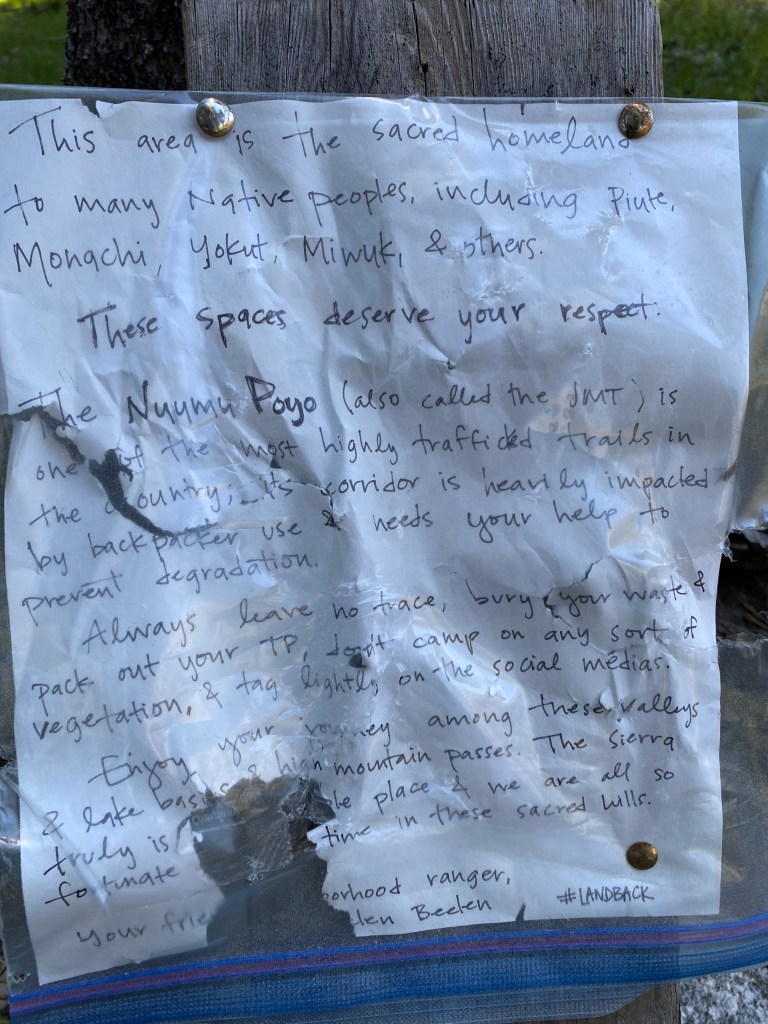 This area is the sacred homeland
to many Native peoples, including Piute,
Monachi, Yokut, Miwuk, & others.
These spaces deserve your respect.
The Nuumu Poyo (also called the JMT) is
one of the most highly trafficked trails in
the country; its corridor is heavily impacted
by backpacker use & needs your help to
prevent degradation.
Always leave no trace, bury your waste &
pack out your TP, don't camp on any sort of
vegetation, & tag lightly on the social médias.
Enjoy your journey among these valleys
& lake basins & high mountain passes. The Sierra
truly is place & we are all so
fortunate time in these sacred hills.
your orhood ranger,
Beeten
#LANDBACK